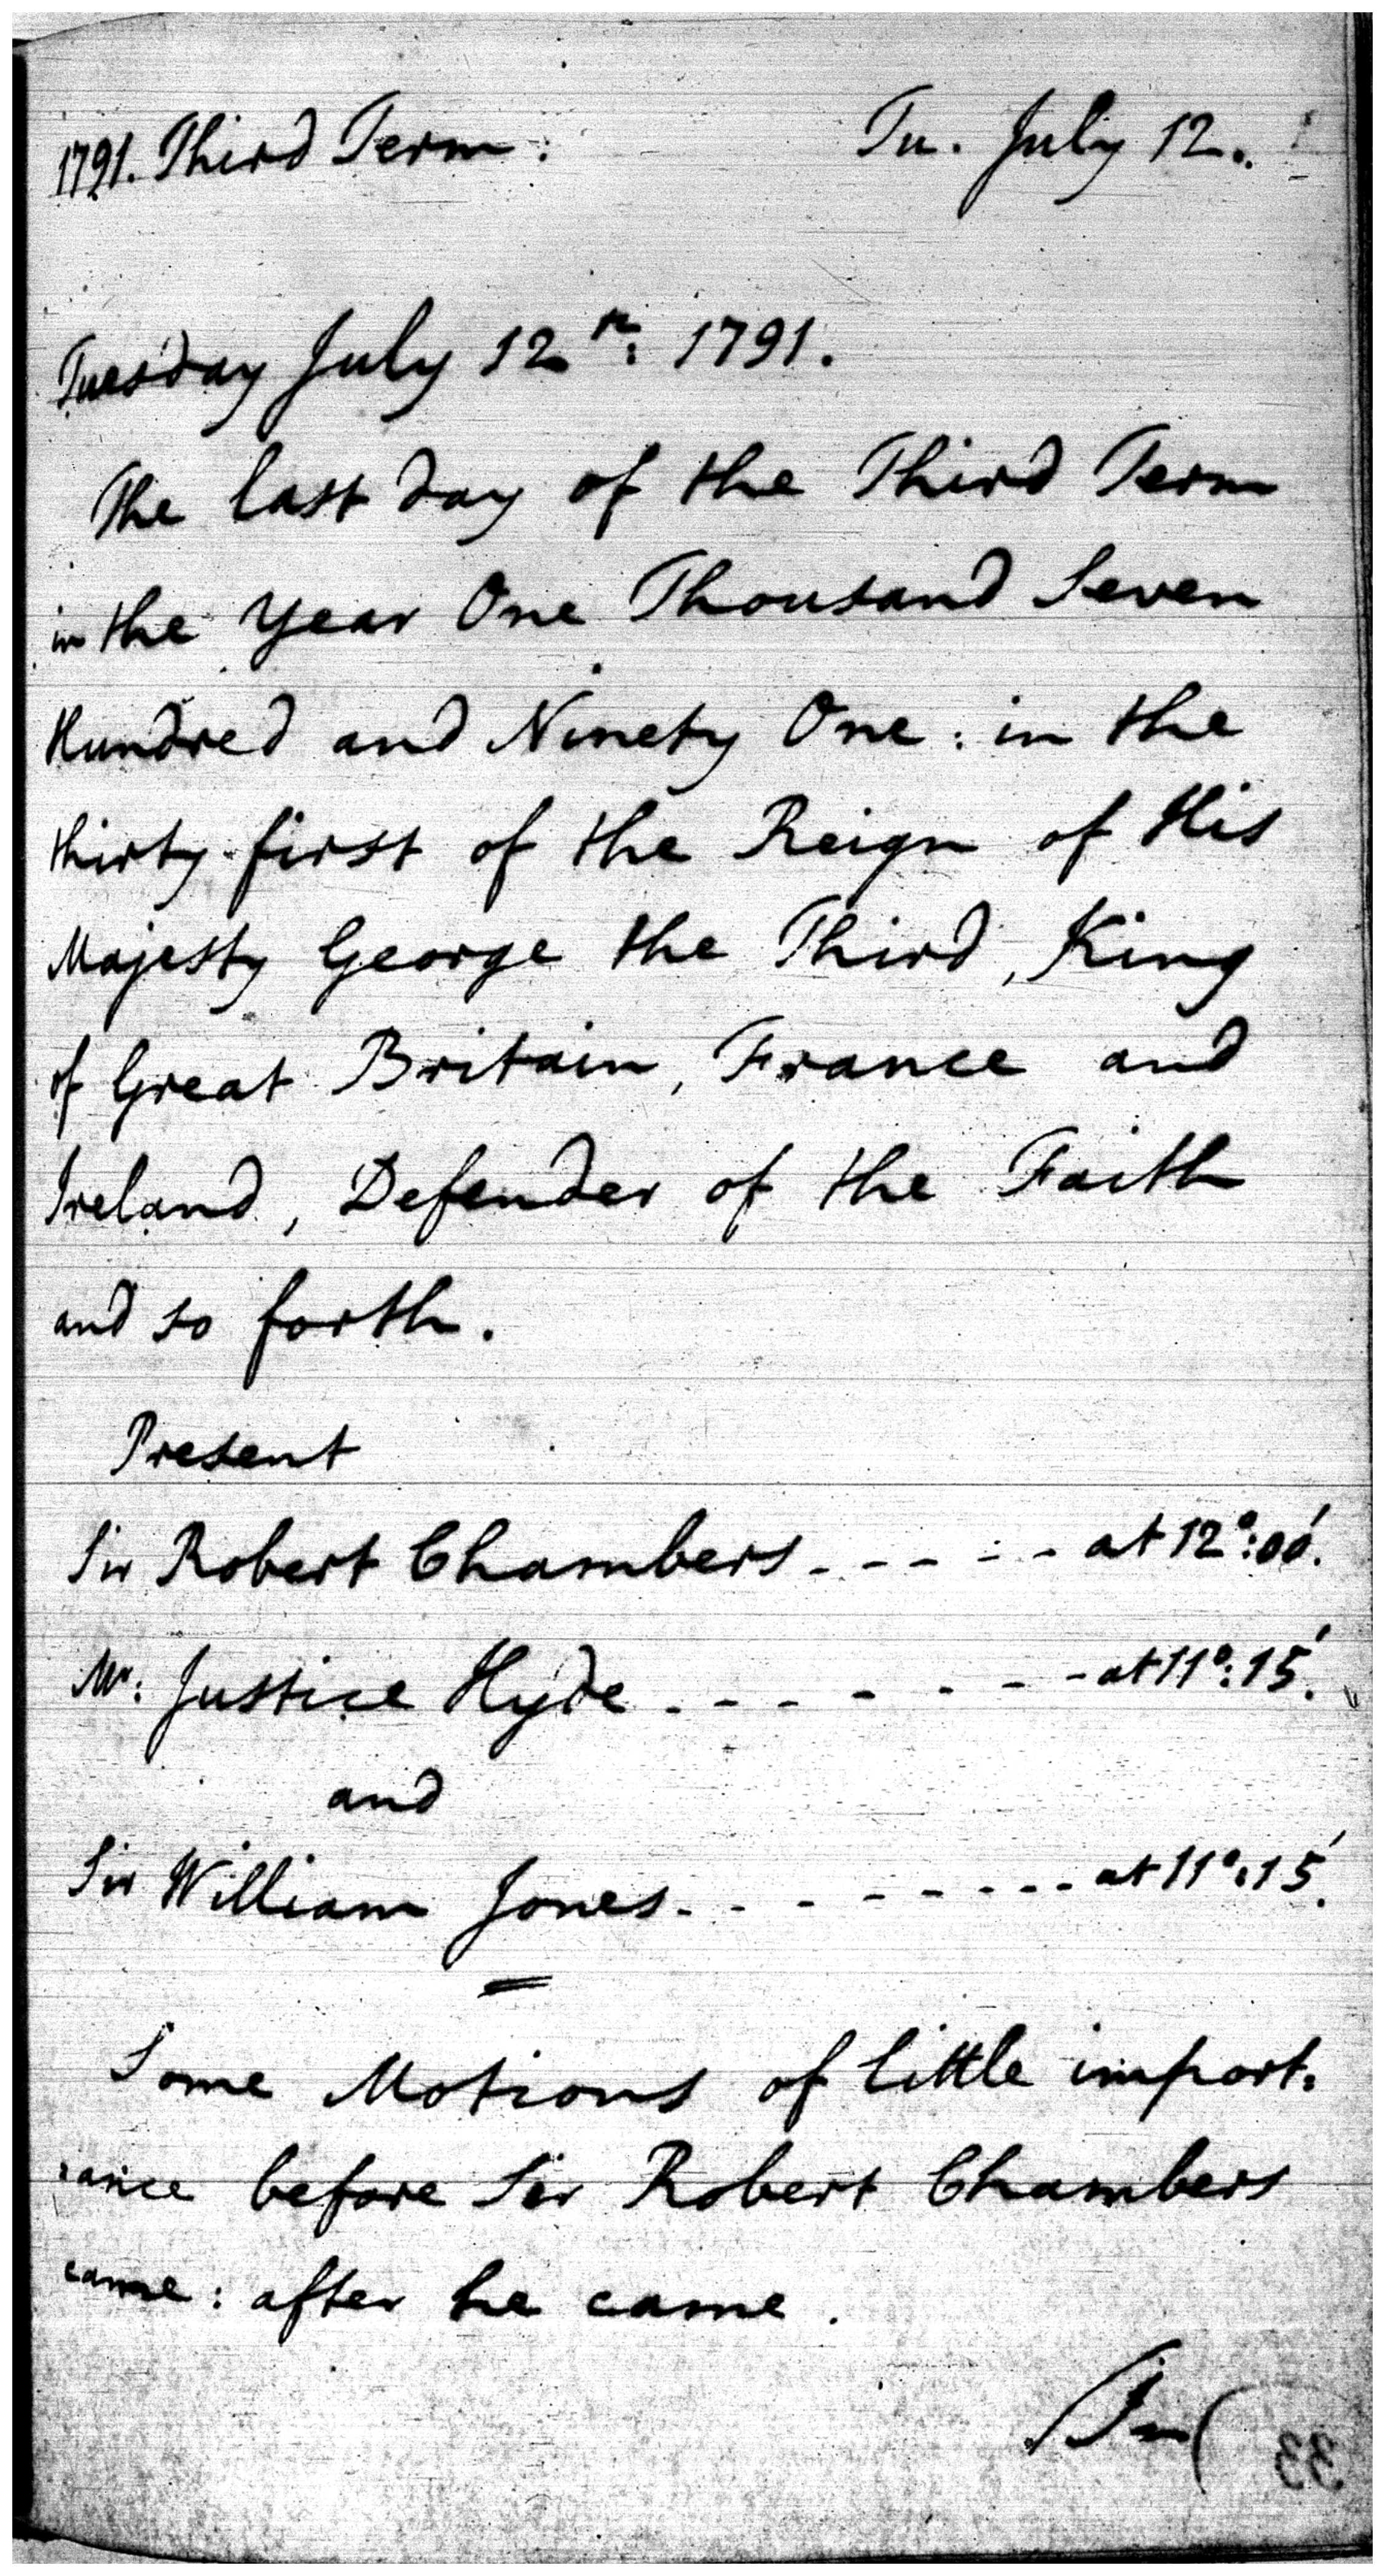 1791. Third Term. Tu. July 12.
Tuesday July 12th: 1791.
The last day of the Third Term
in the Year One Thousand Seven
Hundred and Ninety One: in the
thirty first of the Reign of His
Majesty George the Third, King
of Great Britain, France and
Ireland, Defender of the Faith
and so forth.
Present
Sir Robert Chambers - - - - - at 12°:00'.
Mr: Justice Hyde - - - - - - - at 11°:15'.
and
Sir William Jones - - - - - - - - at 11°:15'.
Some Motions of little import:
:ance before Sir Robert Chambers
came: after he came.
33